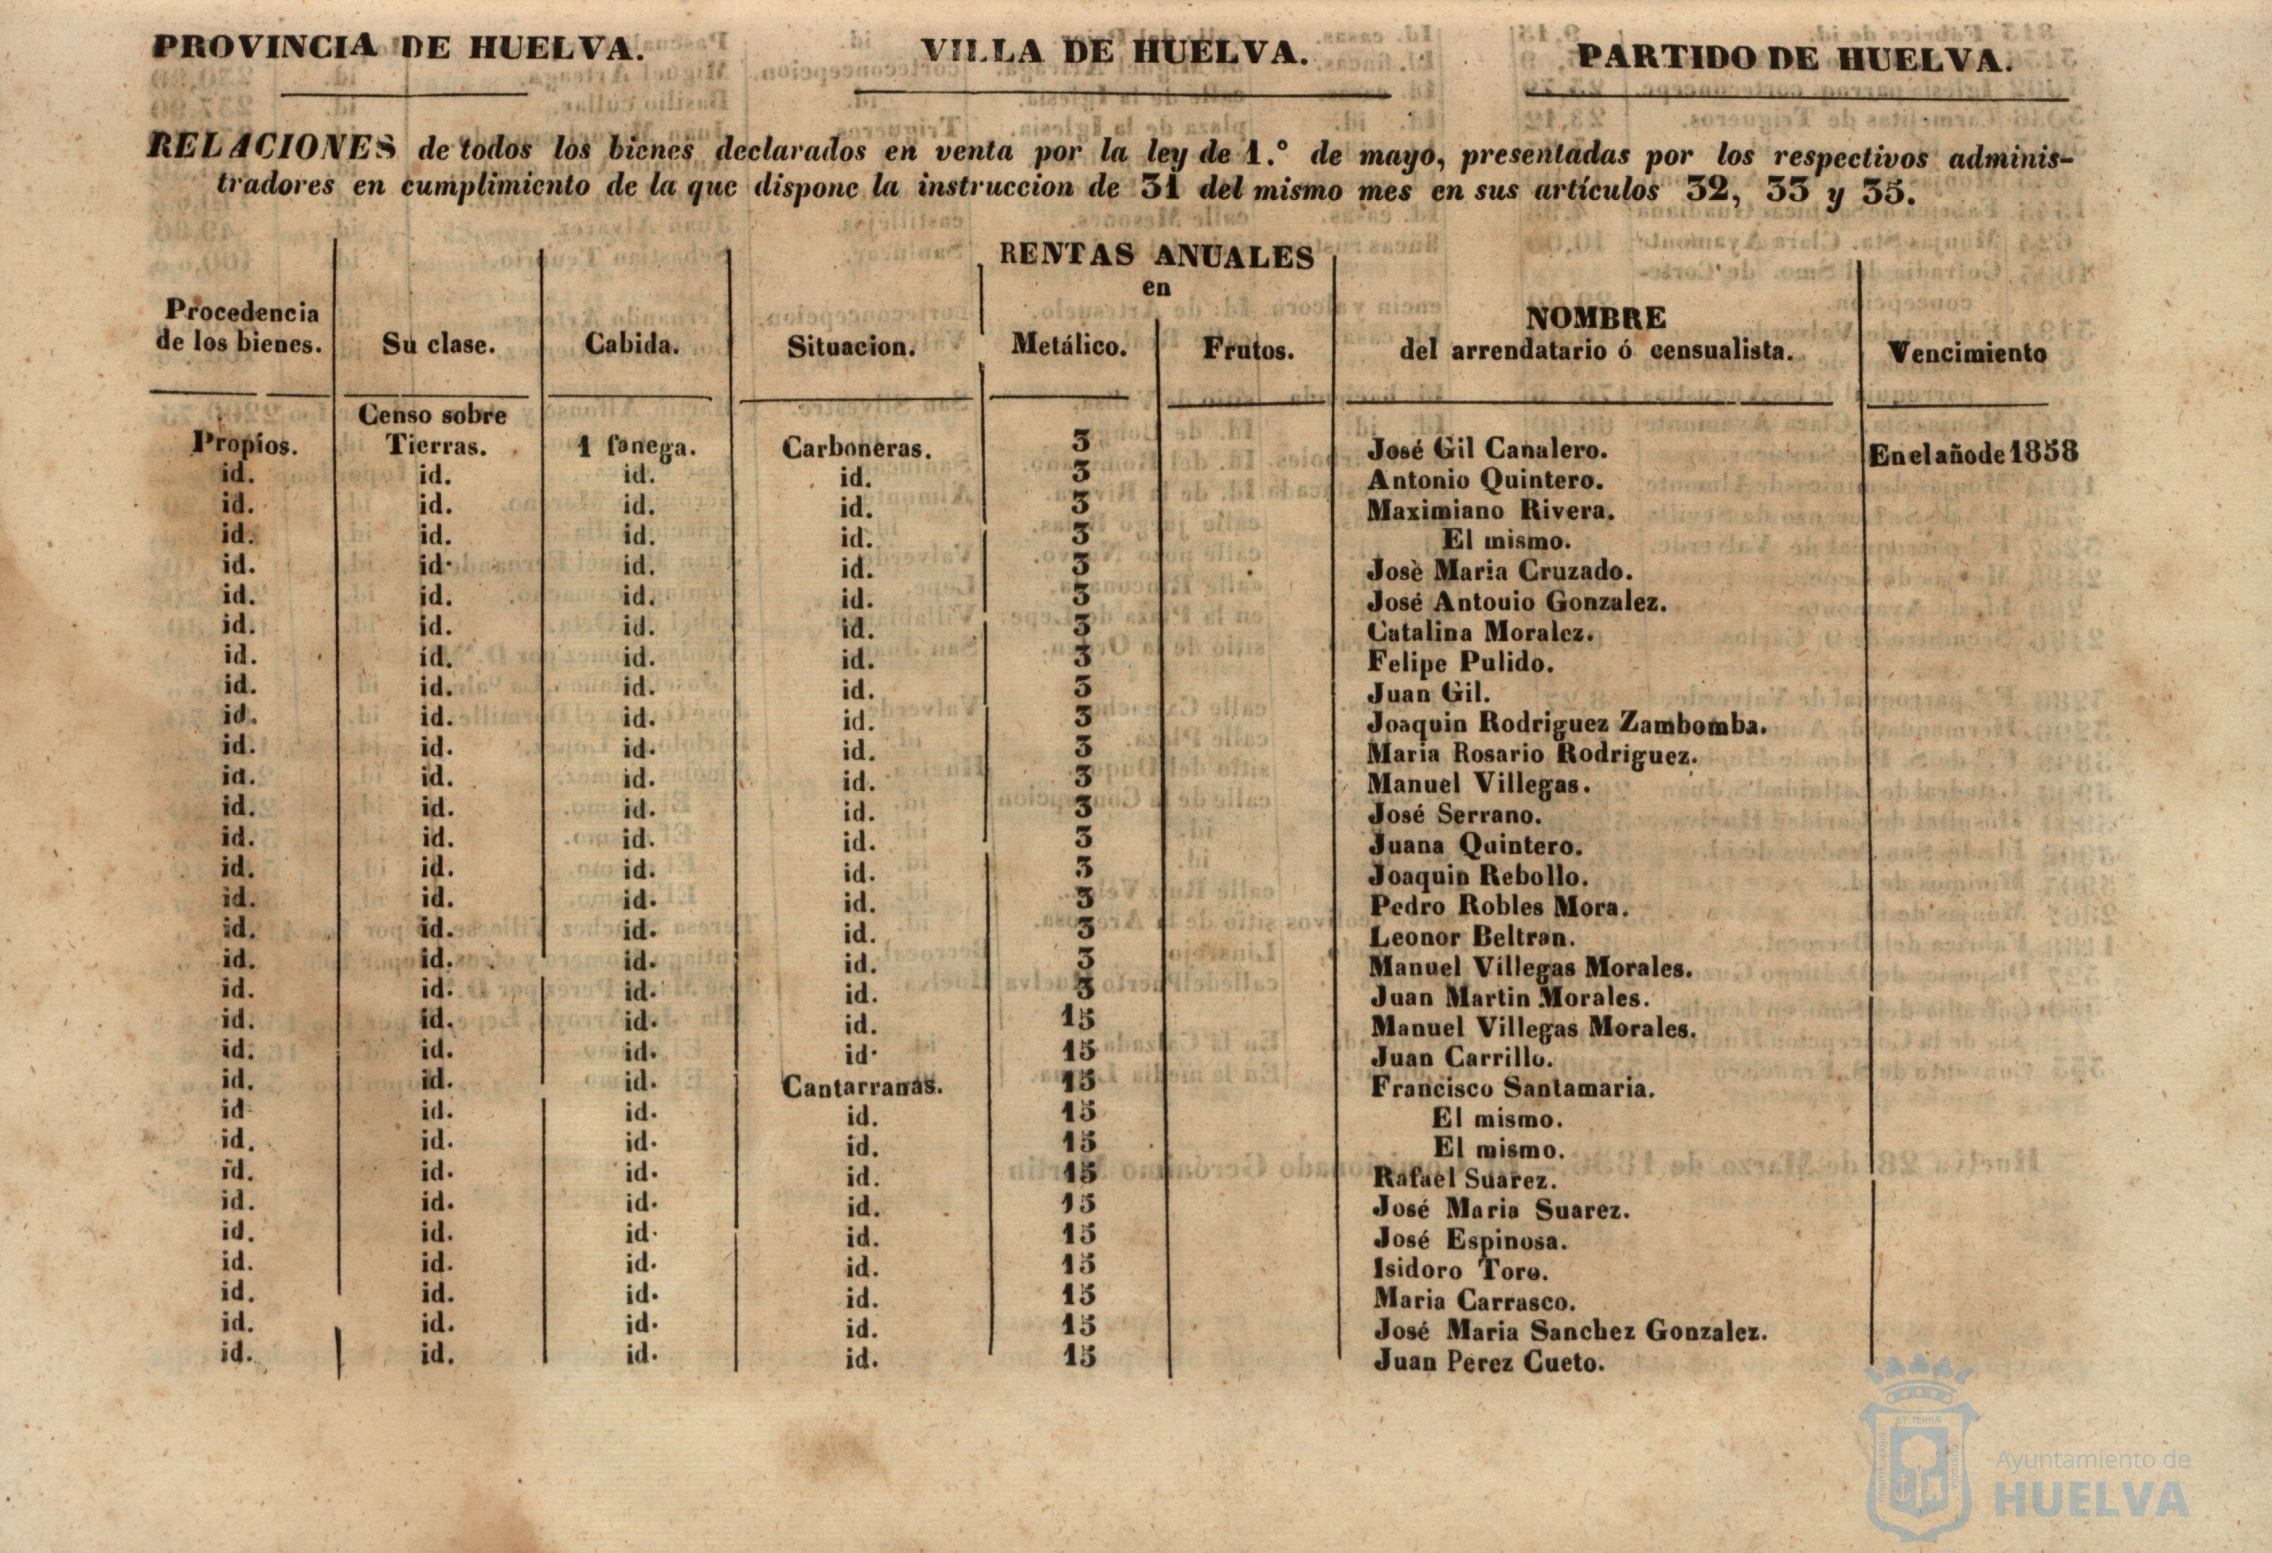 PROVINCIA DE HUELVA. VILLA DE HUELVA. PARTIDO DE HUELVA.
RELACIONES de todos los bienes declarados en venta por la ley de 1.° de mayo, presentadas por los respectivos adminis-
tradores en cumplimiento de la que dispone la instruccion de 31 del mismo mes en sus artículos 32, 33 y 35.
RENTAS ANUALES
en
Procedencia de los bienes. Su clase. Cabida. Situacion. Metálico. Frutos. NOMBRE del arrendatario ó censualista. Vencimiento
Censo sobre
Propios. Tierras. 1 fanega. Carboneras. 3 José Gil Canalero. En el año de 1858
id. id. id. id. 3 Antonio Quintero.
id. id. id. id. 3 Maximiano Rivera.
id. id. id. id. 3 El mismo.
id. id. id. id. 3 Josè Maria Cruzado.
id. id. id. id. 3 José Antouio Gonzalez.
id. id. id. id. 3 Catalina Moralez.
id. id. id. id. 3 Felipe Pulido.
id. id. id. id. 3 Juan Gil.
id. id. id. id. 3 Joaquin Rodriguez Zambomba.
id. id. id. id. 3 Maria Rosario Rodriguez.
id. id. id. id. 3 Manuel Villegas.
id. id. id. id. 3 José Serrano.
id. id. id. id. 3 Juana Quintero.
id. id. id. id. 3 Joaquin Rebollo.
id. id. id. id. 3 Pedro Robles Mora.
id. id. id. id. 3 Leonor Beltran.
id. id. id. id. 3 Manuel Villegas Morales.
id. id. id. id. 3 Juan Martin Morales.
id. id. id. id. 15 Manuel Villegas Morales.
id. id. id. id. 15 Juan Carrillo.
id. id. id. Cantarranas. 15 Francisco Santamaria.
id id. id. id. 15 El mismo.
id. id. id. id. 15 El mismo.
id. id. id. id. 15 Rafael Suarez.
id. id. id. id. 15 José Maria Suarez.
id. id. id. id. 15 José Espinosa.
id. id. id. id. 15 Isidoro Toro.
id. id. id. id. 15 Maria Carrasco.
id. id. id. id. 15 José Maria Sanchez Gonzalez.
id. id. id. id. 15 Juan Perez Cueto.
Ayuntamiento de
HUELVA